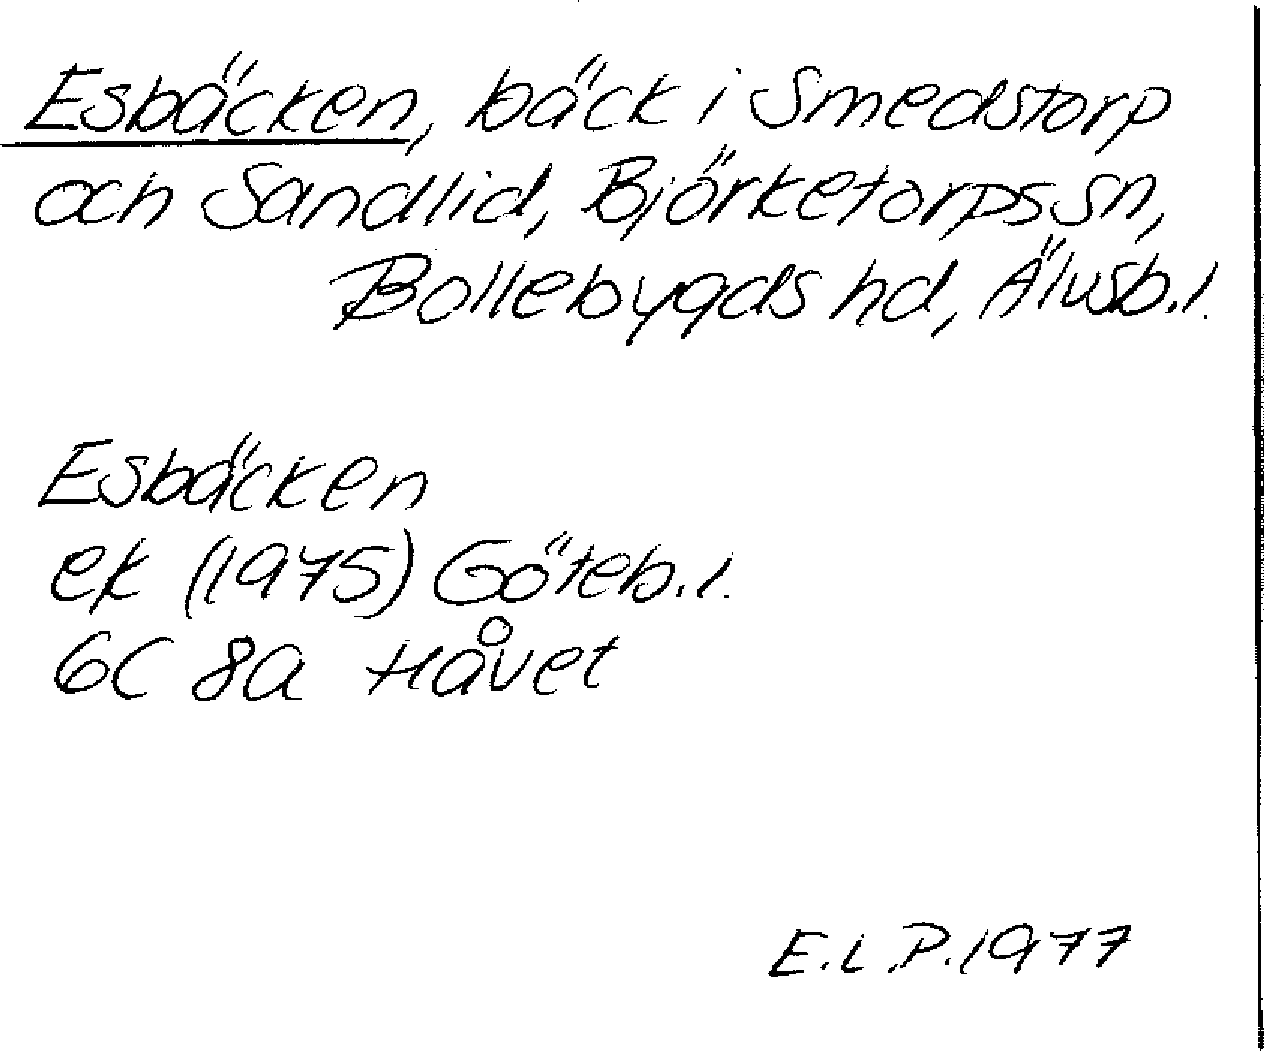 Esbäcken, bäck i Smedstorp
och Sandlid, Björketorps sn,
Bollebygds hd, Älvsb.l.
Esbäcken
ek (1975) Göteb.l.
6C 8a Håvet
E.L.P. 1977